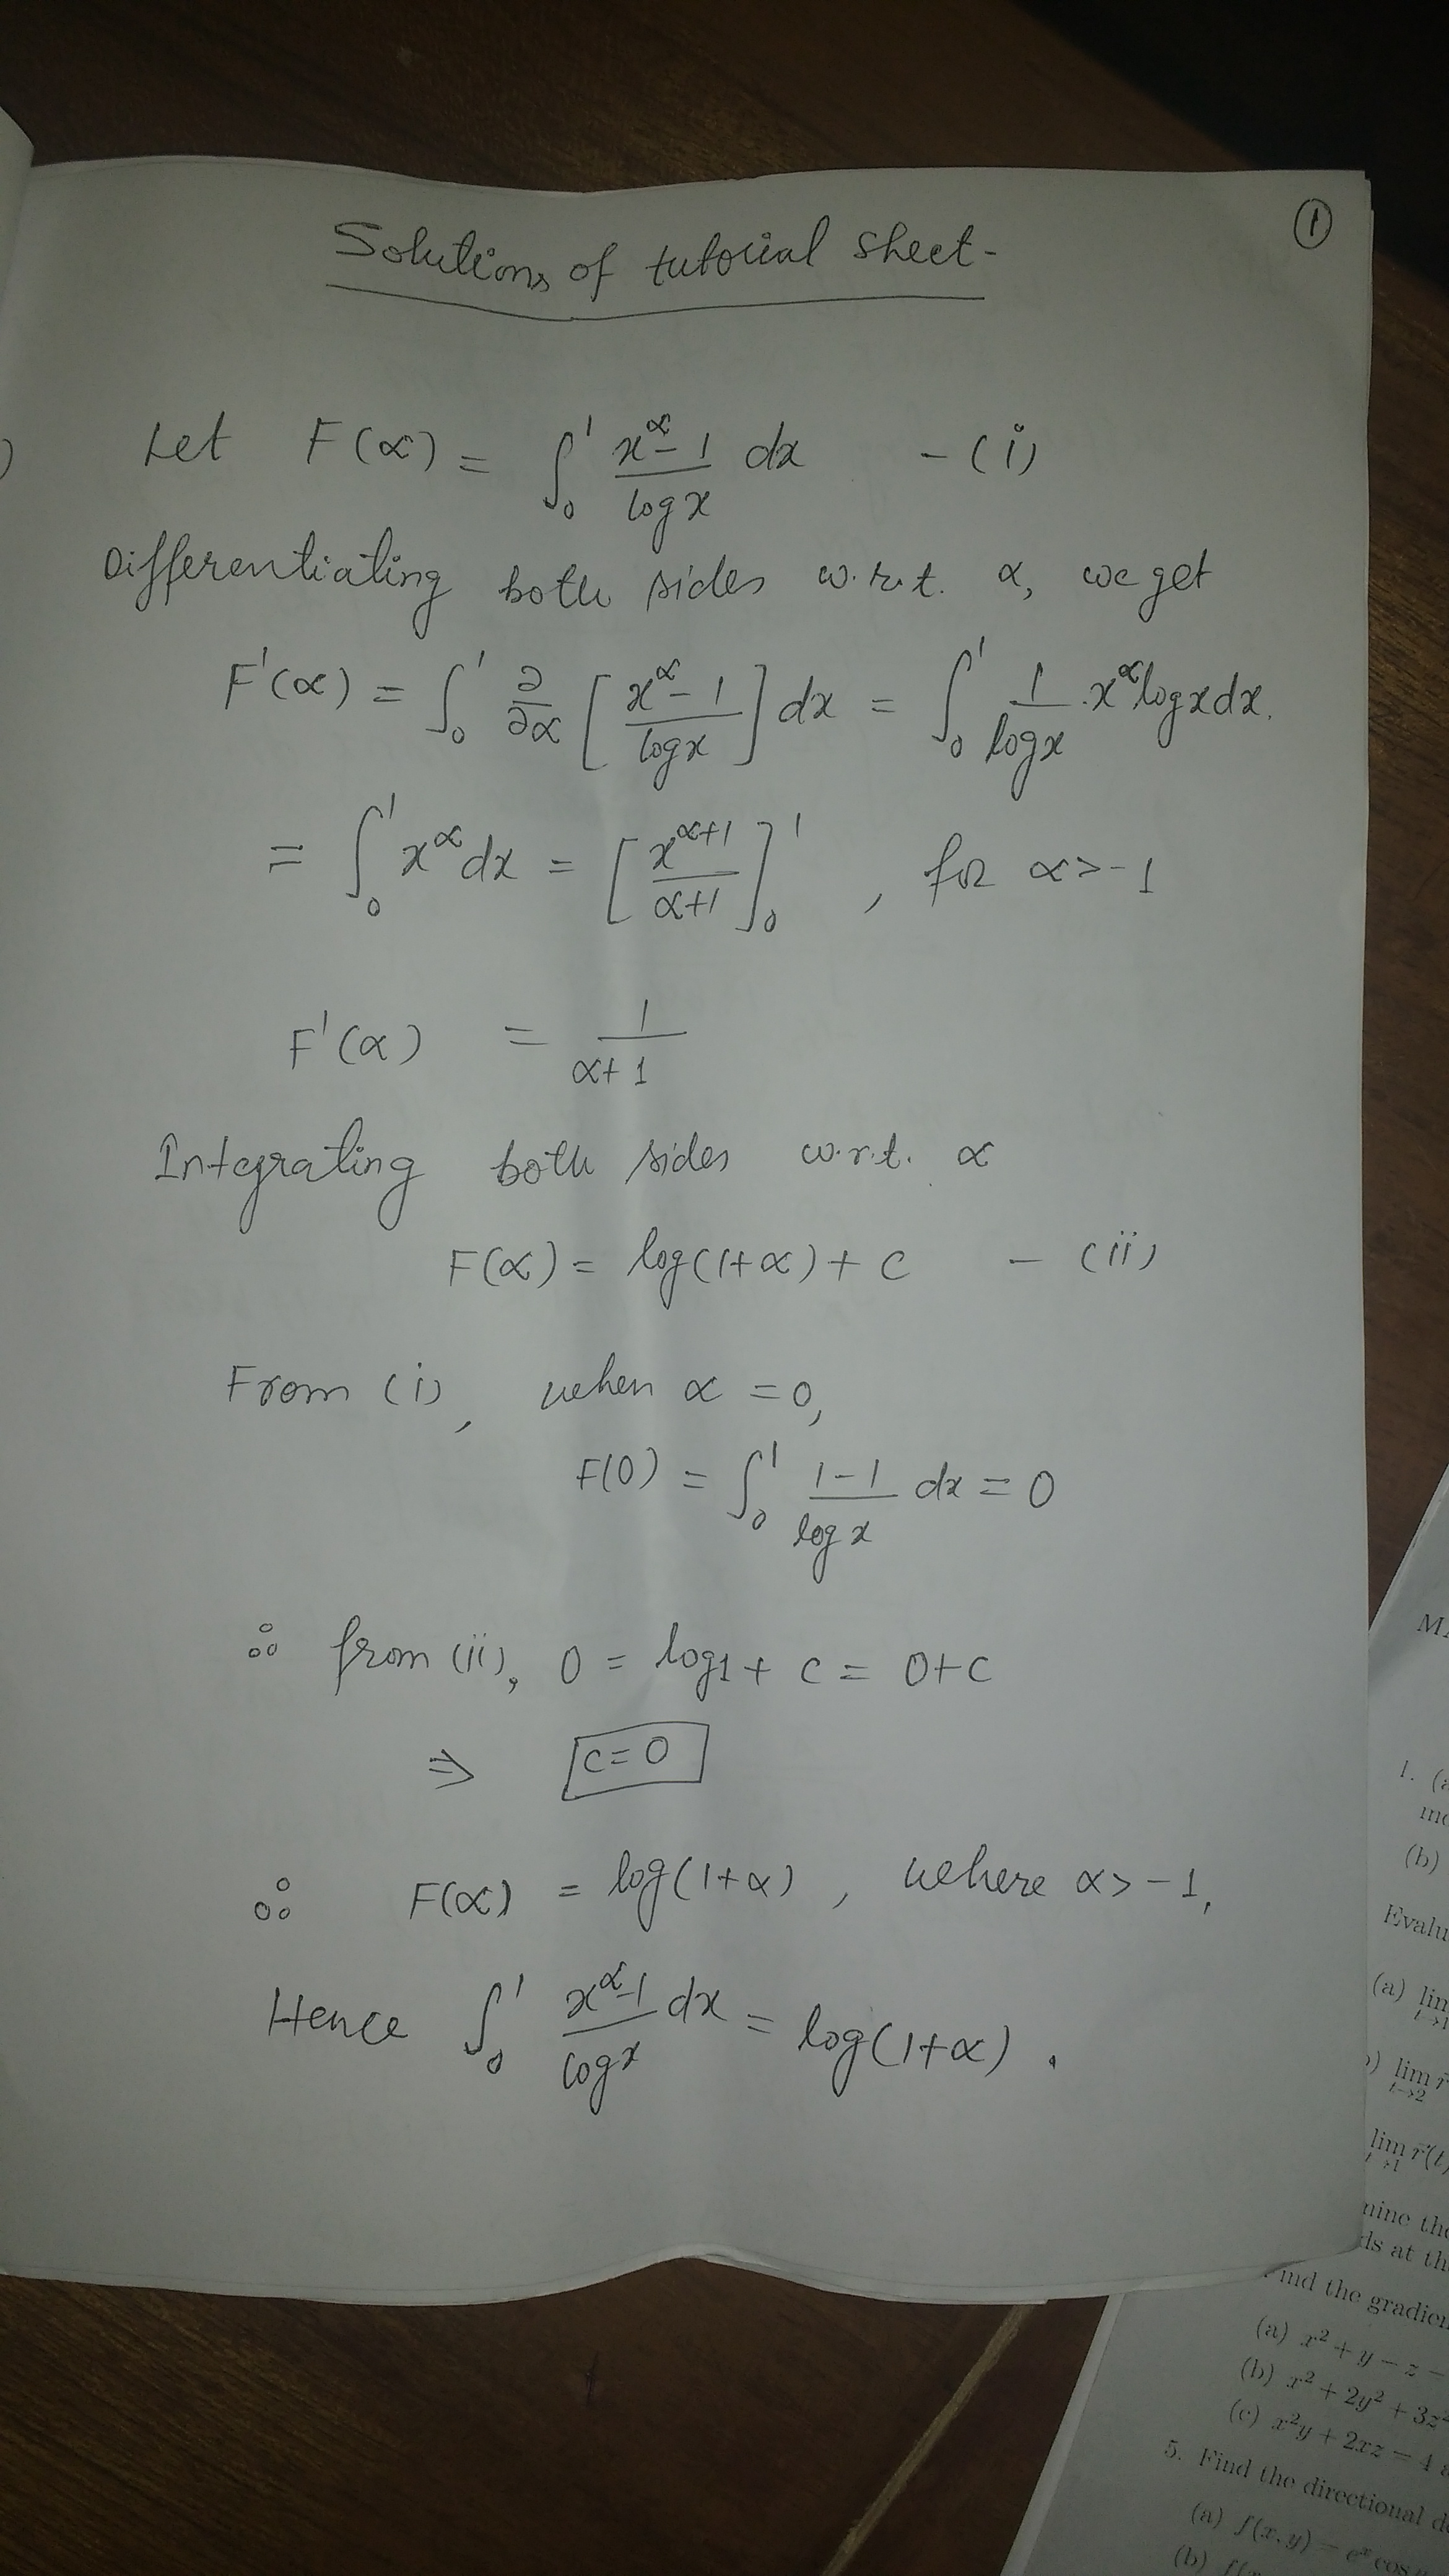 ①
Solutions of tutorial sheet-
) Let F(α) = ∫₀¹ (x^α - 1)/(log x) dx - (i)
Differentiating both sides w.r.t. α, we get
F'(α) = ∫₀¹ ∂/∂α [(x^α - 1)/(log x)] dx = ∫₀¹ 1/(log x) · x^α log x dx.
= ∫₀¹ x^α dx = [x^(α+1)/(α+1)]₀¹ , for α > -1
F'(α) = 1/(α+1)
Integrating both sides w.r.t. α
F(α) = log(1+α) + c - (ii)
From (i), when α = 0,
F(0) = ∫₀¹ (1-1)/(log x) dx = 0
∴ from (ii), 0 = log1 + c = 0+c
⇒ c = 0
∴ F(α) = log(1+α) , where α > -1,
Hence ∫₀¹ (x^α - 1)/(log x) dx = log(1+α) .
1. (a
(b)
Evalu
(a) lim t→1
) lim t→2 r⃗
lim t→1 r⃗(t)
nine the
ds at th
ind the gradien
(a) x² + y − z −
(b) x² + 2y² + 3z²
(c) x²y + 2xz − 4
5. Find the directional de
(a) f(x, y) = eˣ cos
(b) f(x